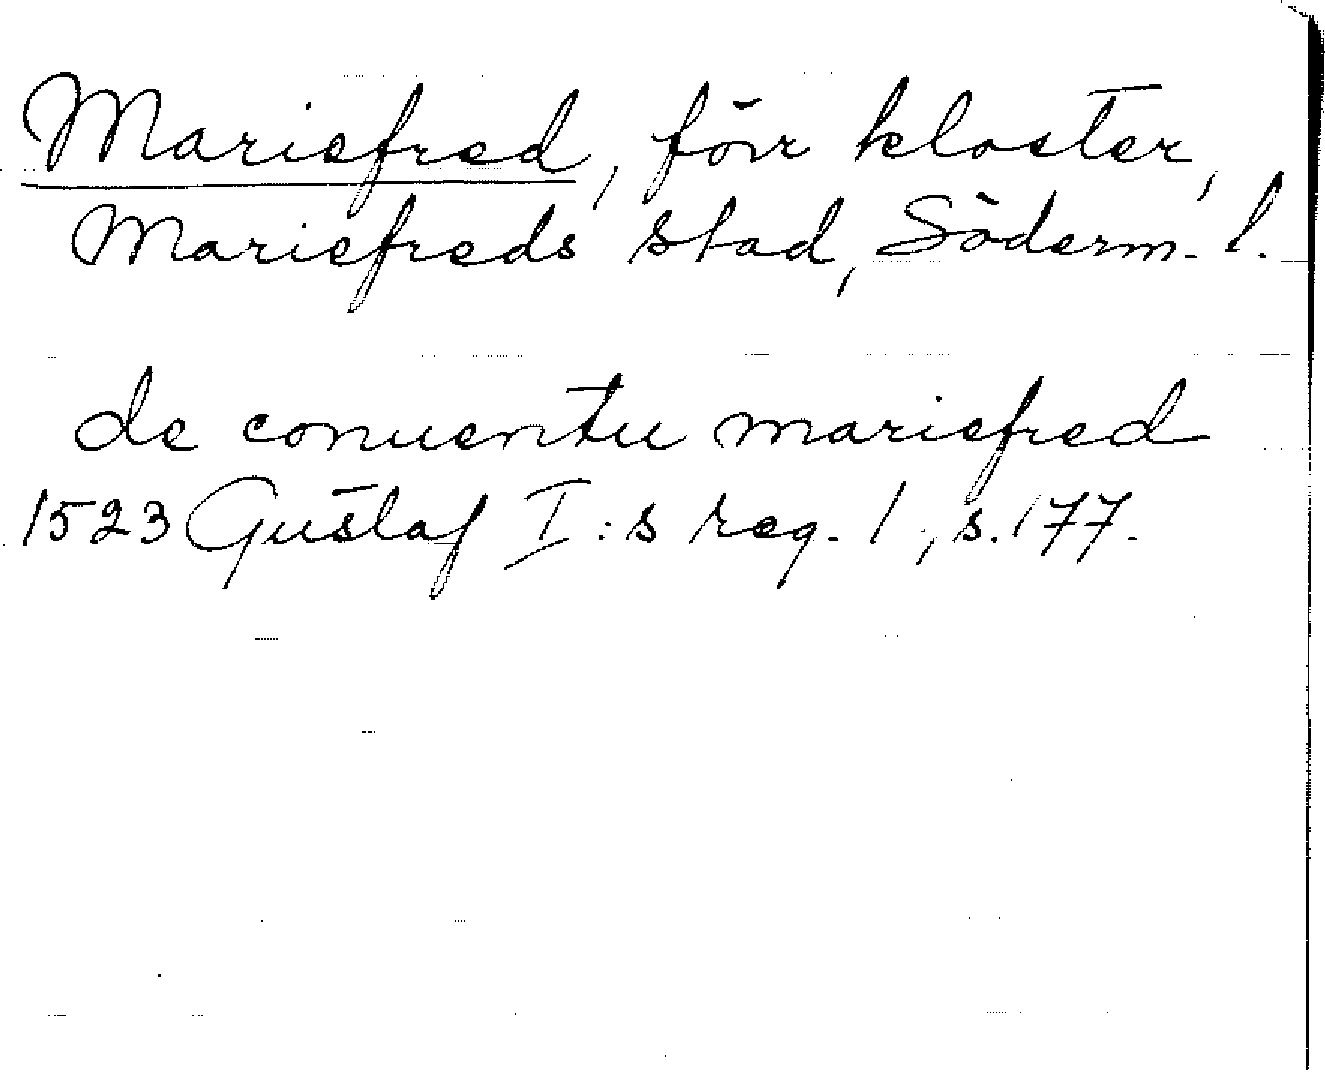 Mariefred, förr kloster,
Mariefreds stad, Söderm. l.
de conuentu mariefred
1523 Gustaf I:s reg. 1, s. 177.